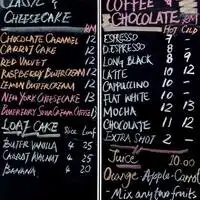 CLASSIC &
CHEESECAKE
RM
CHOCOLATE CARAMEL 12
CARROT CAKE 12
RED VELVET 12
RASPBERRY BUTTERCREAM 12
LEMON BUTTERCREAM 12
NEW YORK CHEESECAKE 13
BLUEBERRY SOUR CREAM CHEESE 13
LOAF CAKE
Slice Loaf
BUTTER VANILLA 4 25
CARROT WALNUT 4 25
BANANA 4 20
COFFEE &
CHOCOLATE RM
HOT COLD
ESPRESSO 7 -
D.ESPRESSO 8 -
LONG BLACK 8 9
LATTE 10 12
CAPPUCCINO 10 -
FLAT WHITE 10 -
MOCHA 12 13
CHOCOLATE 11 12
EXTRA SHOT 2 -
Juice 10.00
Orange - Apple - Carrot
- Mix any two fruits